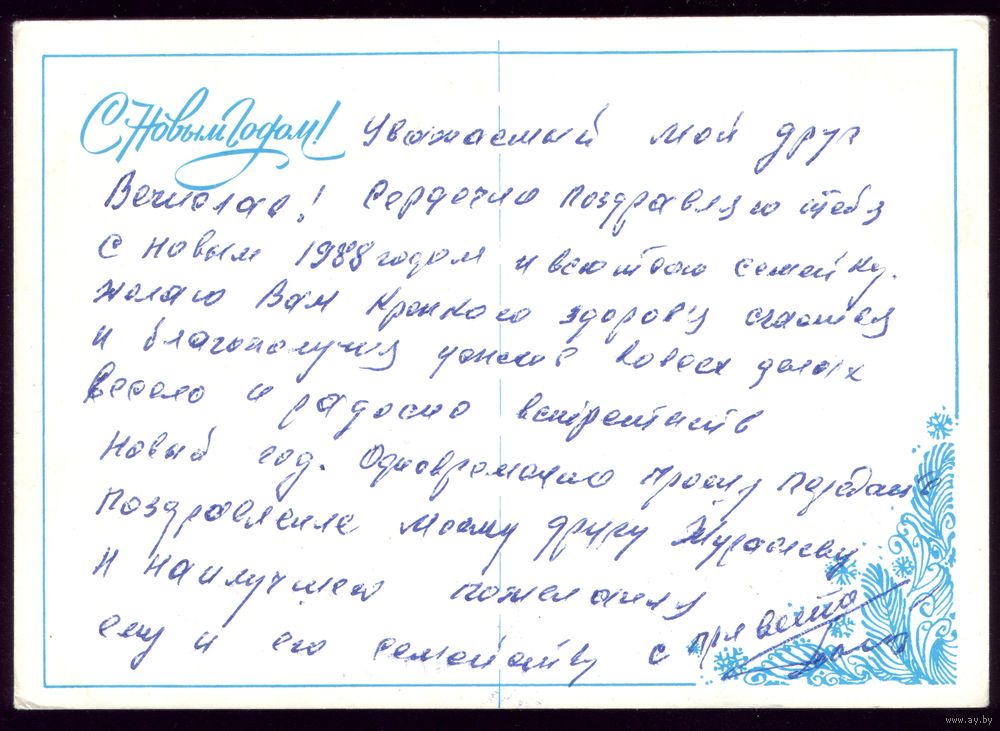 С Новым Годом! Уважаемый мой друг
Вечислав! Сердечно поздравляю тебя
с новым 1988 годом и всю твою семейку.
желаю Вам крепкого здоровья счастья
и благополучия успехов во всех делах
весело и радосно встретить
новый год. Одновременно прошу передать
поздравление моему другу
и наилучшею пожелания
ему и его семейству с приветом
www.ay.by